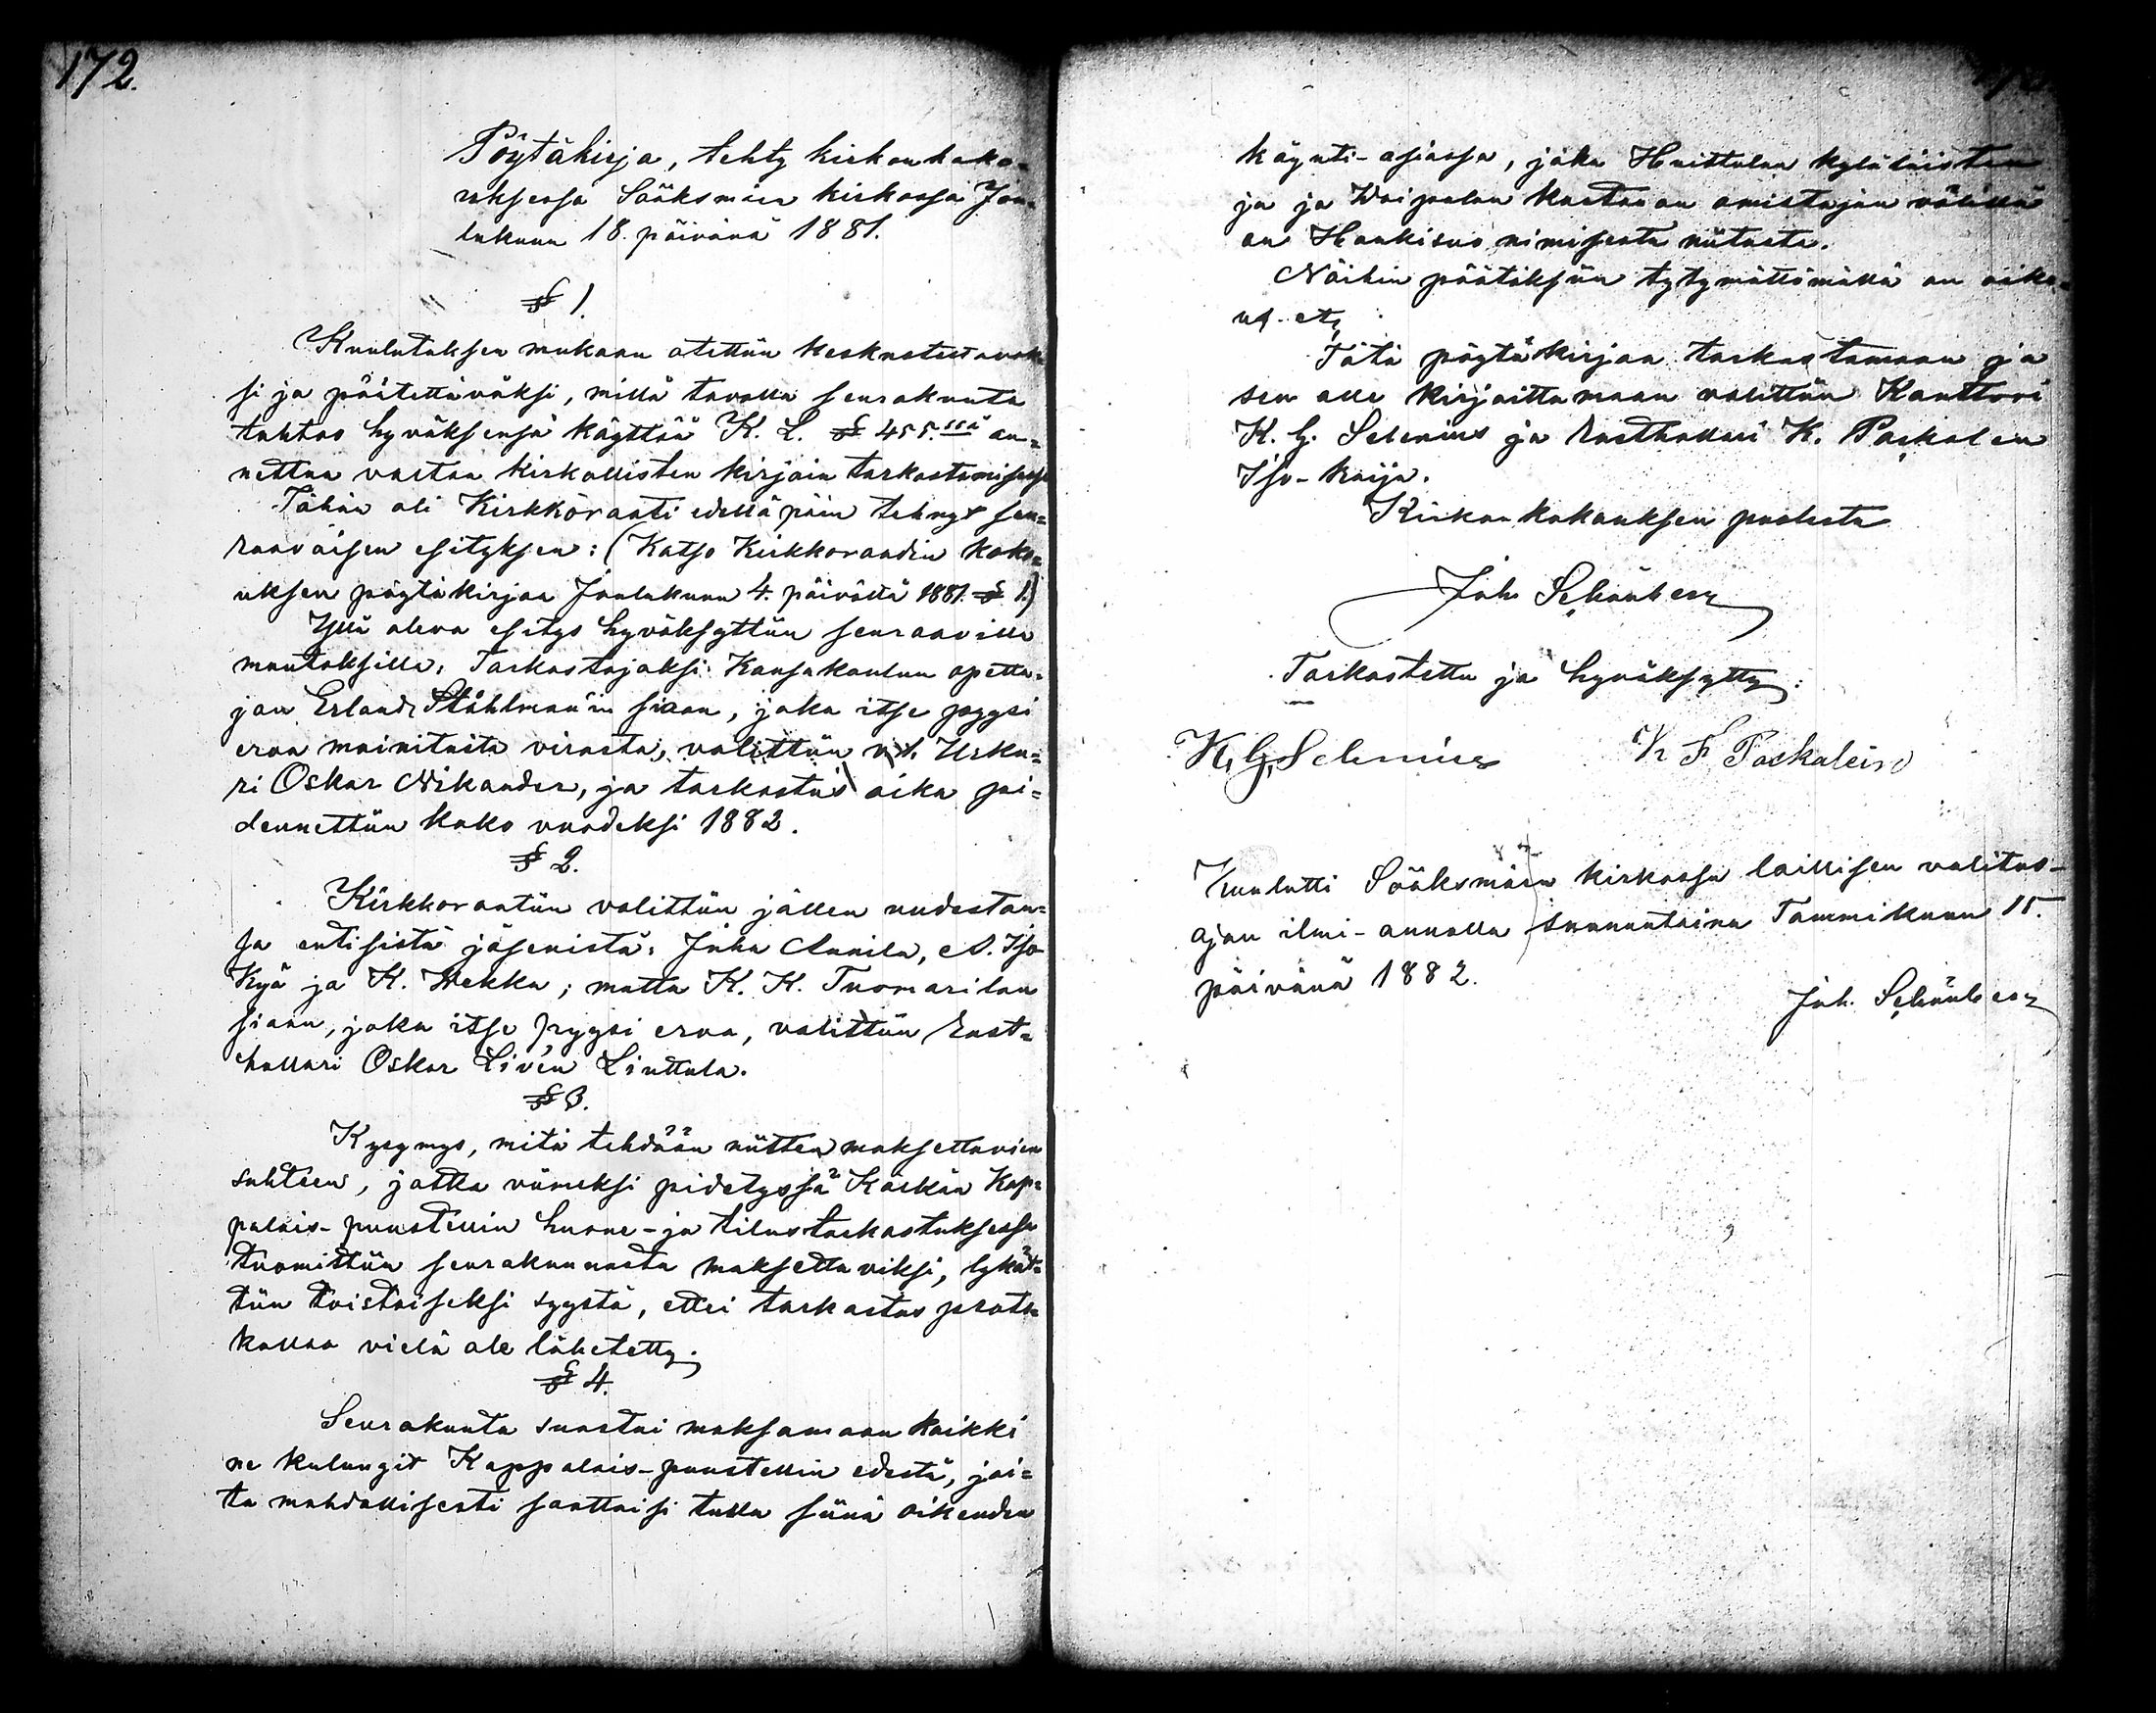 172.
Pöytäkirja, tehty kirkonkoko-
uksessa Sääksmäen kirkossa Jou-
lukuun 18. päivänä 1881.
§ 1.
Kuulutuksen mukaan otettiin keskusteltavak-
si ja päätettäväksi, millä tavalla seurakunta
tahtoo hyväksensä käyttää K. L. § 455.ssä an-
nettua valtaa kirkollisten kirjain tarkastamisessa
Tähän oli Kirkkoraati edellä päin tehnyt seu-
raavaisen esityksen: (Katso Kirkkoraadin koko-
uksen pöytäkirjaa Joulukuun 4. päivältä 1881. § 1.)
Yllä oleva esitys hyväksyttiin seuraavilla
muutoksilla: Tarkastajaksi Kansakoulun opetta-
jan Erland Ståhlman'in siaan, joka itse pyysi
eroa mainitusta virasta, valittiin v.t. Urku-
ri Oskar Nikander, ja tarkastus aika pi-
dennettiin koko vuodeksi 1882.
§ 2.
Kirkkoraatiin valittiin jällen uudestan-
sa entisistä jäsenistä: Juha Annila, A. Iso
Kyä ja K. Wekka; mutta K. K. Tuomarilan
siaan, joka itse pyysi eroa, valittiin Rust-
hollari Oskar Livén Liuttula.
§ 3.
Kysymys, mitä tehdään niitten maksettavien
suhteen, jotka viimeksi pidetyssä Kaskän Kap-
palais-puustellin huone- ja tilustarkastuksessa
tuomittiin seurakunnasta maksettaviksi, lykät-
tiin toistaiseksi syystä, ettei tarkastus proto-
kollaa vielä ole lähetetty.
§ 4.
Seurakunta suostui maksamaan kaikki
ne kulungit Kappalais-puustellin edestä, joi-
ta mahdollisesti saattaisi tulla siinä oikeuden
käynti-asiassa, joka Huittulan kyläläisten
ja ja Woipalan kartanon omistajan välillä
on Haukisuo nimisestä niitusta.
Näihin päätöksiin tytymättömällä on oike-
us. etc
Tätä pöytäkirjaa tarkastamaan ja
sen alle kirjoittamaan valittiin Kanttori
K. G. Selenius ja Rusthollari K. Paskalen
Iso-Kaija.
Kirkon kokouksen puolesta
Joh Schönberg
Tarkastettu ja hyväksytty:
K. G. Selenius K F Paskalein
Kuulutti Sääksmäen kirkossa laillisen valitus-
ajan ilmi-annolla sunnuntaina Tammikuun 15.
päivänä 1882.
Joh. Schönberg